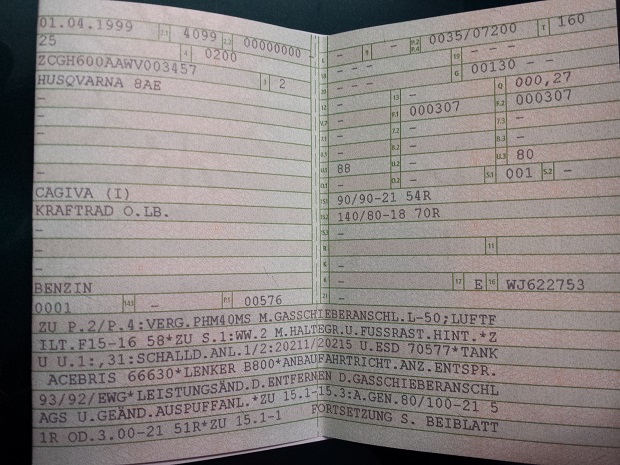 01.04.1999 2.1 4099 2.2 00000000
25 4 0200
ZCGH600AAWV003457 3 2
HUSQVARNA 8AE
-
-
-
-
CAGIVA (I)
KRAFTRAD O.LB.
-
-
-
BENZIN
0001 - 00576
0035/07200 T 160
- - - -
G 00130 - -
- Q 000,27
000307 000307
- -
- -
88 U.3 80
- S.1 001 S.2 -
90/90-21 54R
140/80-18 70R
-
- 11
-
- 17 E 16 WJ622753
21
ZU P.2/P.4:VERG.PHM40MS M.GASSCHIEBERANSCHL.L-50;LUFTF
ILT.F15-16 58*ZU S.1:WW.2 M.HALTEGR.U.FUSSRAST.HINT.*Z
U U.1:,31:SCHALLD.ANL.1/2:20211/20215 U.ESD 70577*TANK
ACEBRIS 66630*LENKER B800*ANBAUFAHRTRICHT.ANZ.ENTSPR.
93/92/EWG*LEISTUNGSÄND.D.ENTFERNEN D.GASSCHIEBERANSCHL
AGS U.GEÄND.AUSPUFFANL.*ZU 15.1-15.3:A.GEN.80/100-21 5
1R OD.3.00-21 51R*ZU 15.1-1 FORTSETZUNG S. BEIBLATT